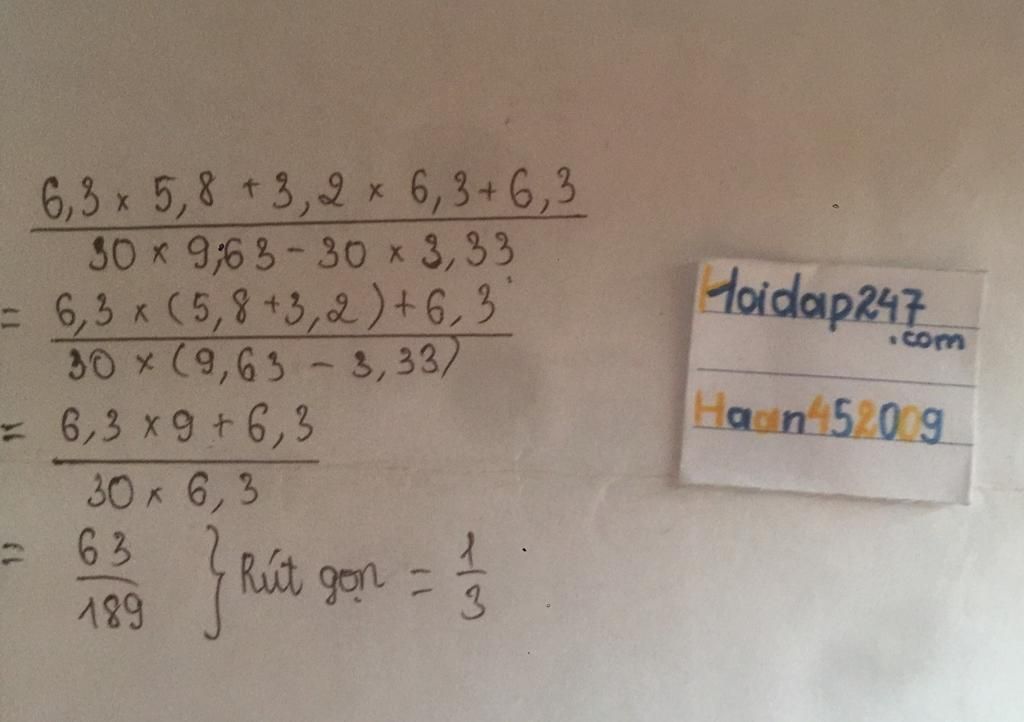 6,3 × 5,8 + 3,2 × 6,3 + 6,3
30 × 9,63 - 30 × 3,33
= 6,3 × (5,8 + 3,2) + 6,3
30 × (9,63 - 3,33)
= 6,3 × 9 + 6,3
30 × 6,3
= 63
189
} Rút gọn = 1
3
Hoidap247
.com
Haan452009